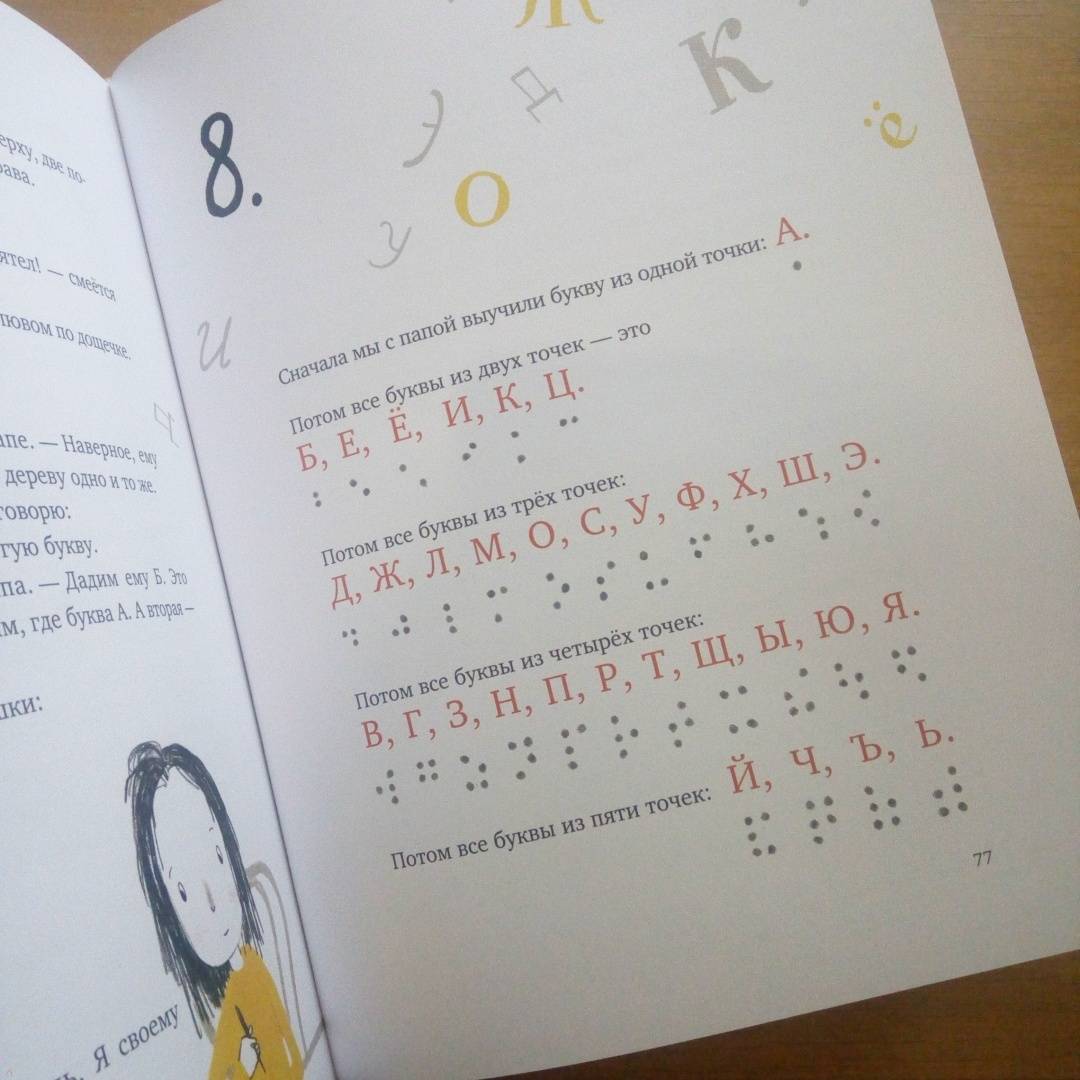 ерху, две по-
рава.
ятел! — смеётся
лювом по дощечке.
апе. — Наверное, ему
дереву одно и то же.
говорю:
гую букву.
па. — Дадим ему Б. Это
м, где буква А. А вторая —
шки:
Я своему
Ж
К
Д
У
ё
О
У
И
Ч
8.
Сначала мы с папой выучили букву из одной точки: А.
Потом все буквы из двух точек — это
Б, Е, Ё, И, К, Ц.
Потом все буквы из трёх точек:
Д, Ж, Л, М, О, С, У, Ф, Х, Ш, Э.
Потом все буквы из четырёх точек:
В, Г, З, Н, П, Р, Т, Щ, Ы, Ю, Я.
Потом все буквы из пяти точек: Й, Ч, Ъ, Ь.
77